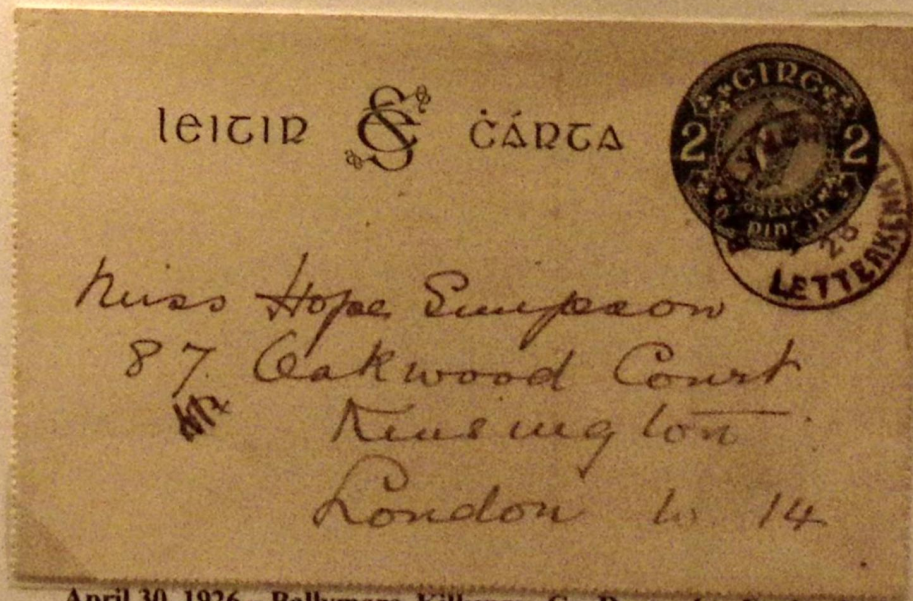 LEITIR SC ĊÁRTA
EIRE
2 2
POSTAGE
PINGIN
26
LETTERKENNY
Miss Hope Simpson
87 Oakwood Court
Kensington
London W 14
April 30, 1926